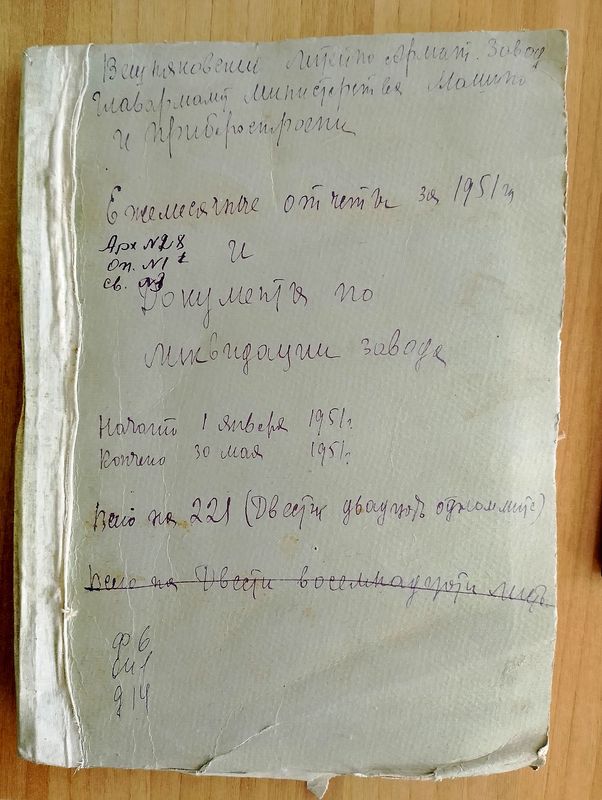 Вешняковский литейно Армат. Завод
Главармат Министерства Машино
и Приборостроени
Ежемесячные отчеты за 1951 г
Арх №28
Оп. №1
Св. №3
и
Документы по
ликвидации завода
Начато 1 января 1951г.
Кончено 30 мая 1951г.
на 221 (Двести двадцать одном листе)
на Двести восемнадцати лист.
ф 6
оп 1
д 14